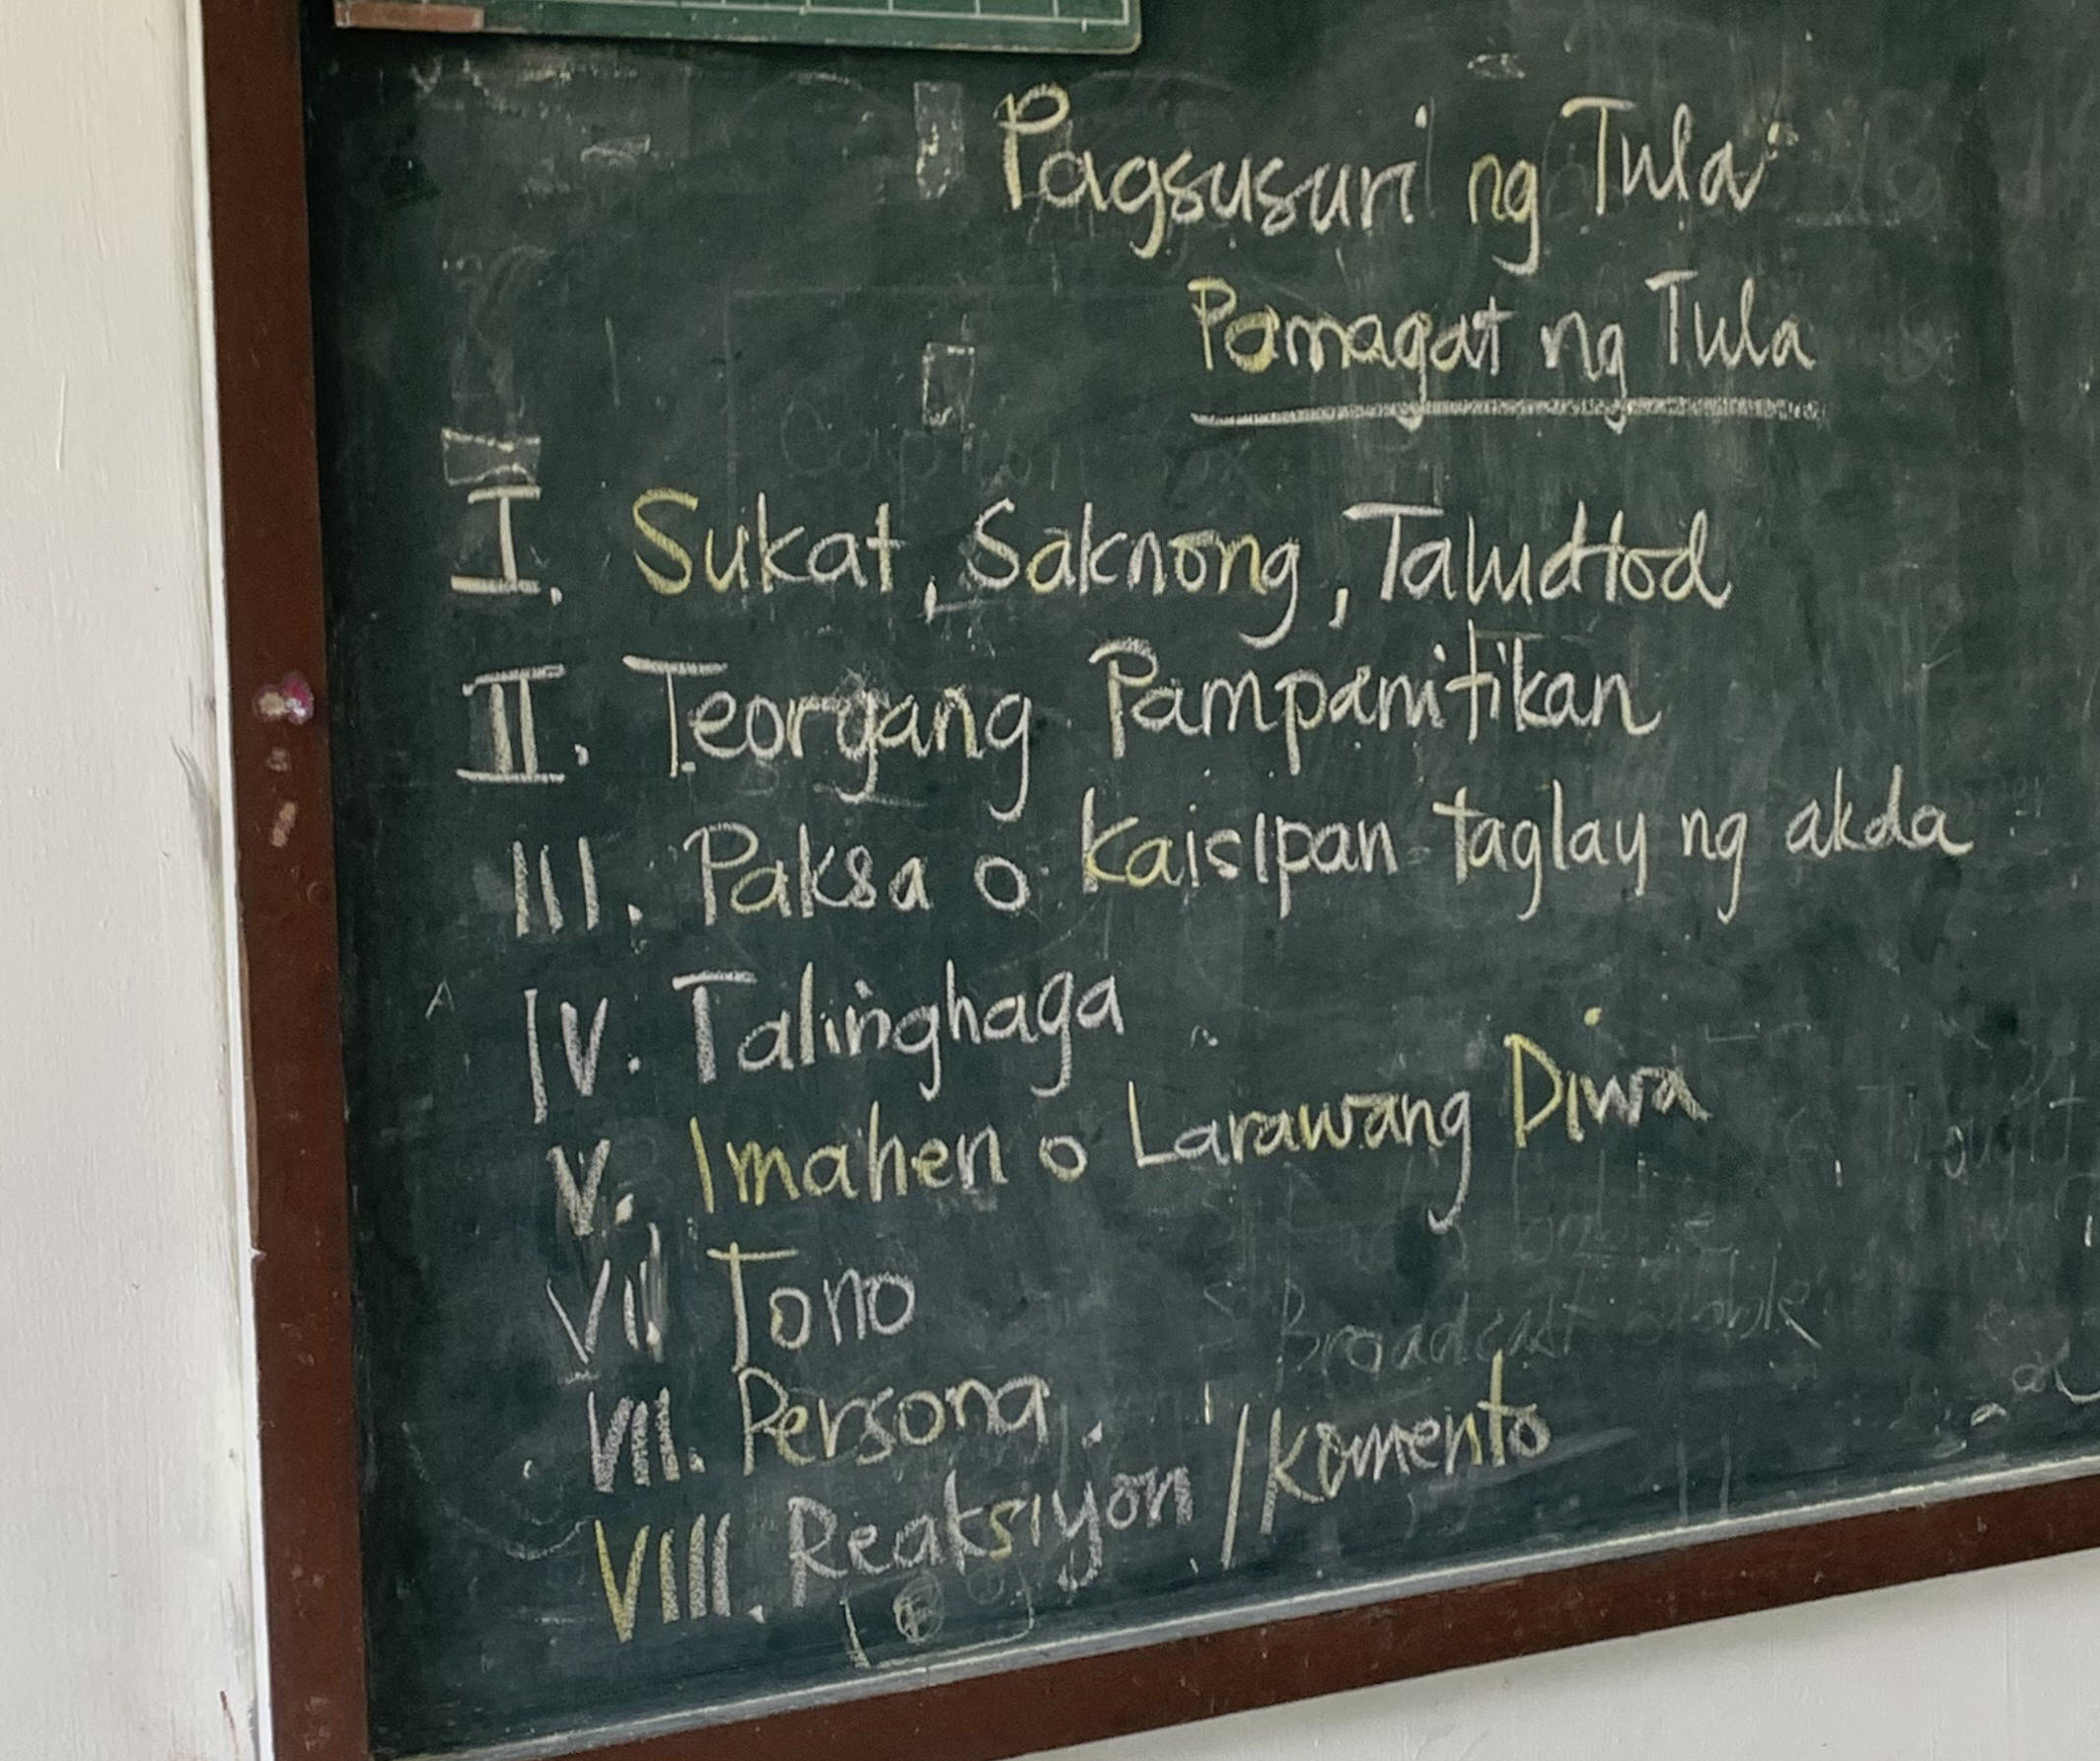 Pagsusuri ng Tula
Pamagat ng Tula
I. Sukat, Saknong, Taludtod
II. Teoryang Pampanitikan
III. Paksa o kaisipan taglay ng akda
IV. Talinghaga
V. Imahen o Larawang Diwa
VI Tono
VII. Persona
VIII. Reaksiyon / Komento
Broadcast